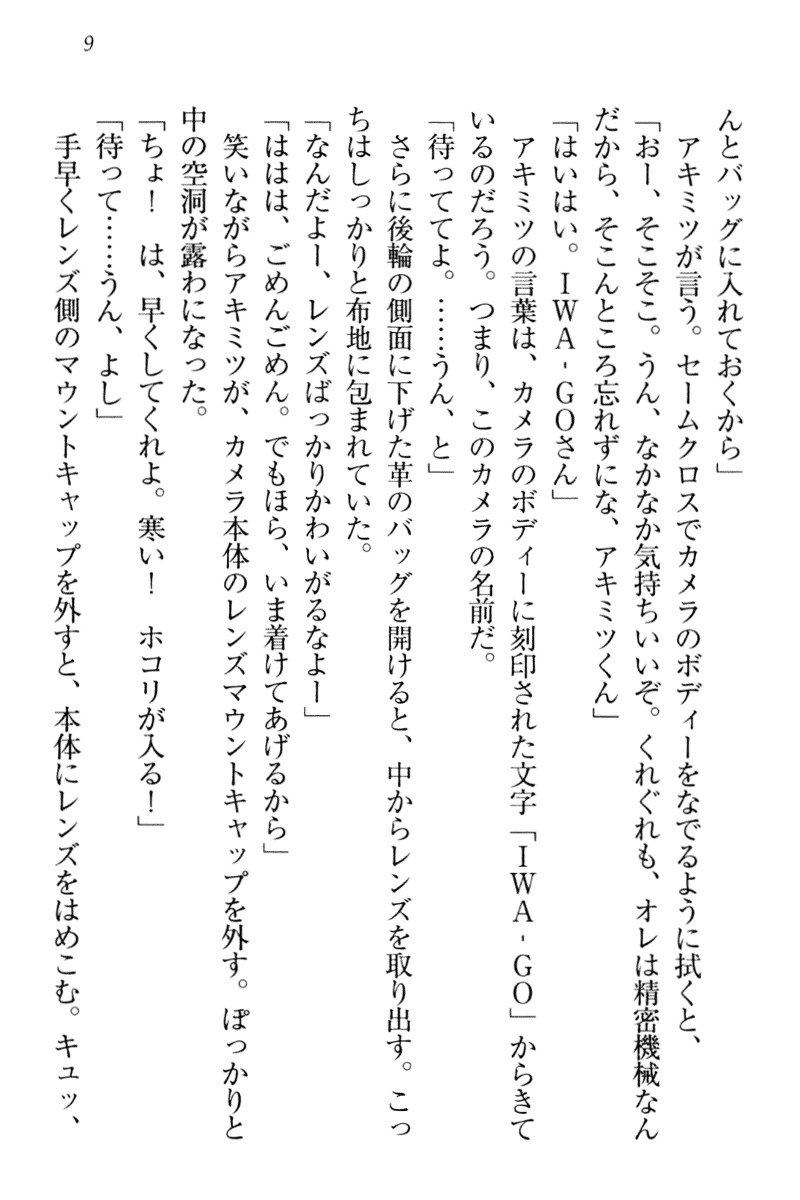 9
んとバッグに入れておくから」
アキミツが言う。セームクロスでカメラのボディーをなでるように拭くと、
「おー、そこそこ。うん、なかなか気持ちいいぞ。くれぐれも、オレは精密機械なん
だから、そこんところ忘れずにな、アキミツくん」
「はいはい。IWA-GOさん」
アキミツの言葉は、カメラのボディーに刻印された文字「IWA-GO」からきて
いるのだろう。つまり、このカメラの名前だ。
「待っててよ。……うん、と」
さらに後輪の側面に下げた革のバッグを開けると、中からレンズを取り出す。こっ
ちはしっかりと布地に包まれていた。
「なんだよー、レンズばっかりかわいがるなよー」
「ははは、ごめんごめん。でもほら、いま着けてあげるから」
笑いながらアキミツが、カメラ本体のレンズマウントキャップを外す。ぽっかりと
中の空洞が露わになった。
「ちょ！　は、早くしてくれよ。寒い！　ホコリが入る！」
「待って……うん、よし」
手早くレンズ側のマウントキャップを外すと、本体にレンズをはめこむ。キュッ、